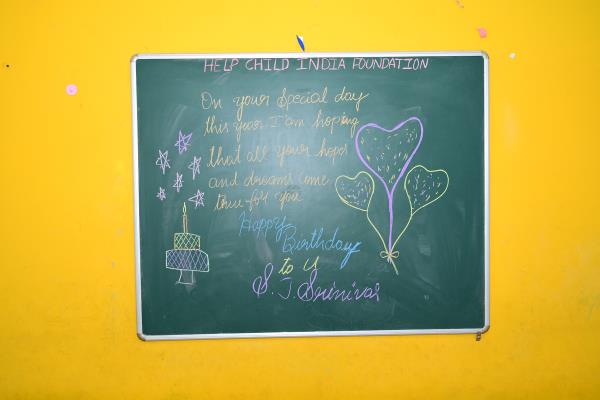 HELP CHILD INDIA FOUNDATION
On your special day
this year I am hoping
that all your hopes
and dreams come
true for you
Happy
Birthday
to U
S. J. Srinivas